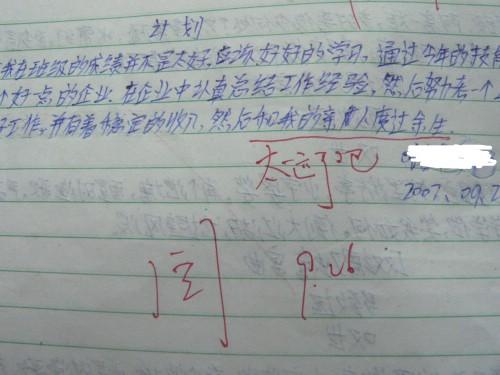 计划
我在班级的成绩并不是太好.应该好好的学习,通过今年的技
个好点的企业.在企业中认真总结工作经验,然后努力考一个
工作,并有着稳定的收入,然后和我的亲人度过余生
太远了吧
2007.09.2
阅 9.26